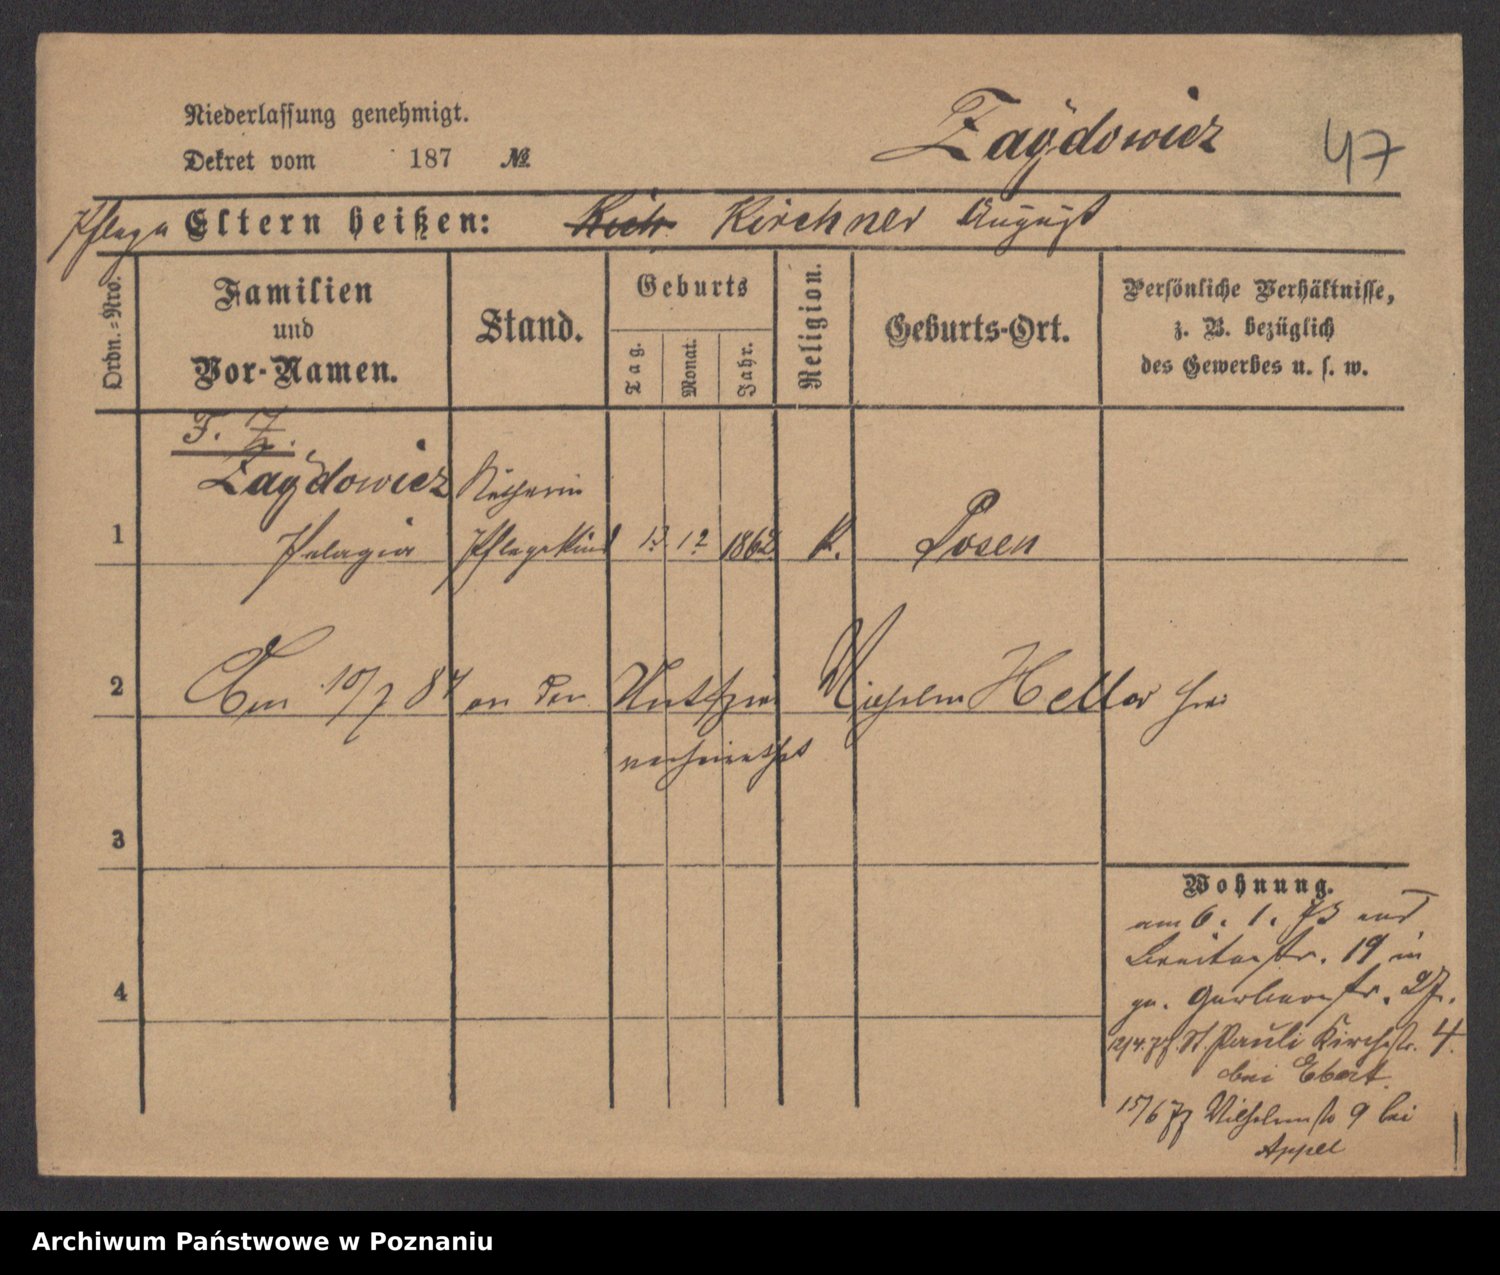 Niederlassung genehmigt.
Dekret vom 187 №
Zaydowicz
47
Pflege Eltern heißen: Kirchner August
Ordn.=Nro.
Familien
und
Vor-Namen.
Stand.
Geburts
Tag.
Monat.
Jahr.
Religion.
Geburts-Ort.
Persönliche Verhältnisse,
z. B. bezüglich
des Gewerbes u. s. w.
F. Z.
Zaydowicz
1 Pelagia Pflegekind 13. 12 1862 K. Posen
2 Am 10/7 84 an den Wilhelm Heller hier
verheirathet
3
4
Wohnung.
am 6. 1. 73 aus
Breitestr. 19 in
Gerberstr. 27.
12/4.77. St. Pauli Kirchstr. 4.
bei Ebert
15/6 77 Wilhelmstr 9 bei
Appel
Archiwum Państwowe w Poznaniu